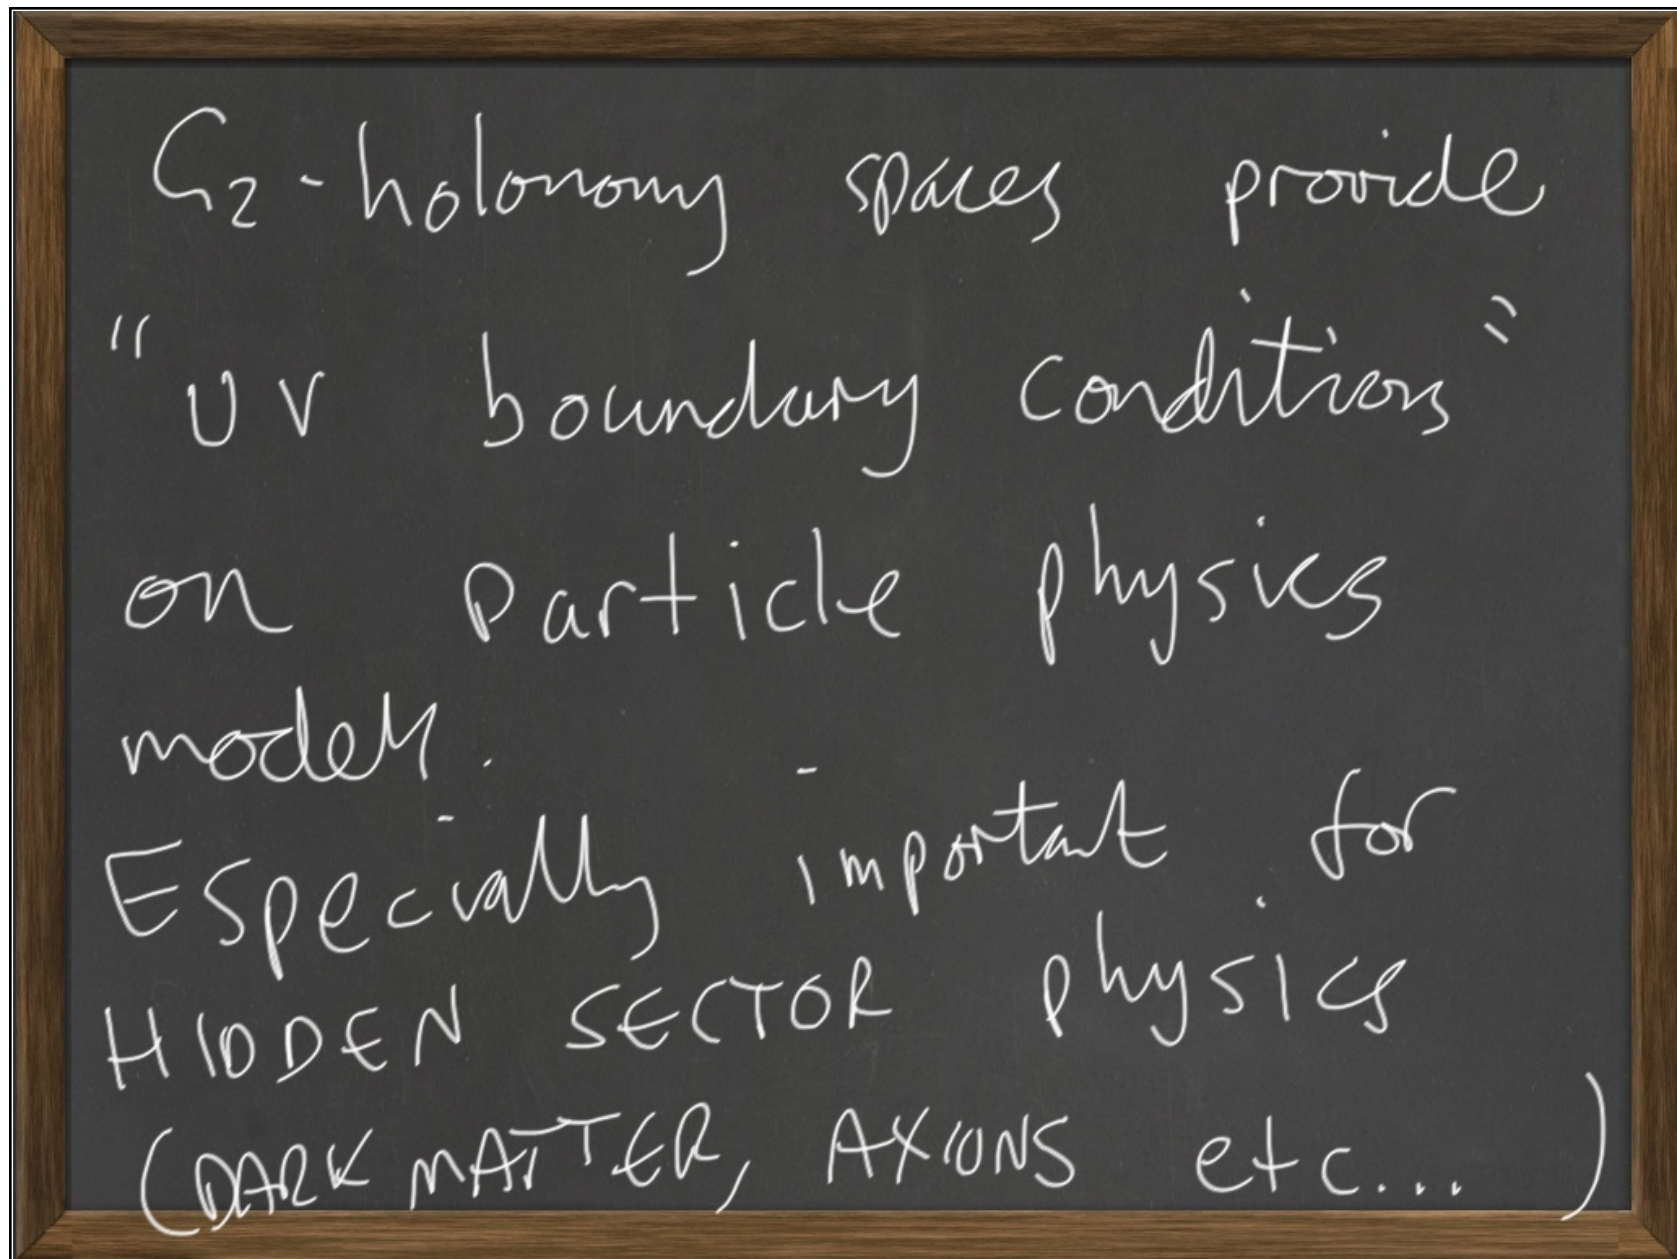 G₂-holonomy spaces provide
"UV boundary conditions"
on particle physics
models.
Especially important for
HIDDEN SECTOR physics
(DARK MATTER, AXIONS etc... )